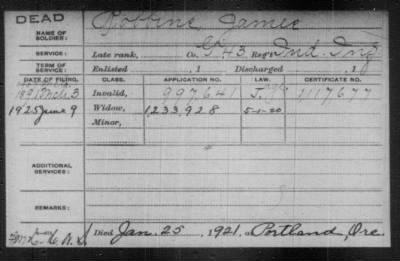 DEAD
NAME OF SOLDIER: Robbins James
SERVICE: Late rank, Co. G, 43 Reg't Ind. Inf
TERM OF SERVICE: Enlisted , 1 Discharged , 1
DATE OF FILING. CLASS. APPLICATION NO. LAW. CERTIFICATE NO.
1891 Mch 3 Invalid, 997641 1117677
1925 June 9 Widow, 1233,928 5-1-20
Minor,
ADDITIONAL SERVICES:
REMARKS:
Died Jan. 25, 1921, at Portland, Ore.